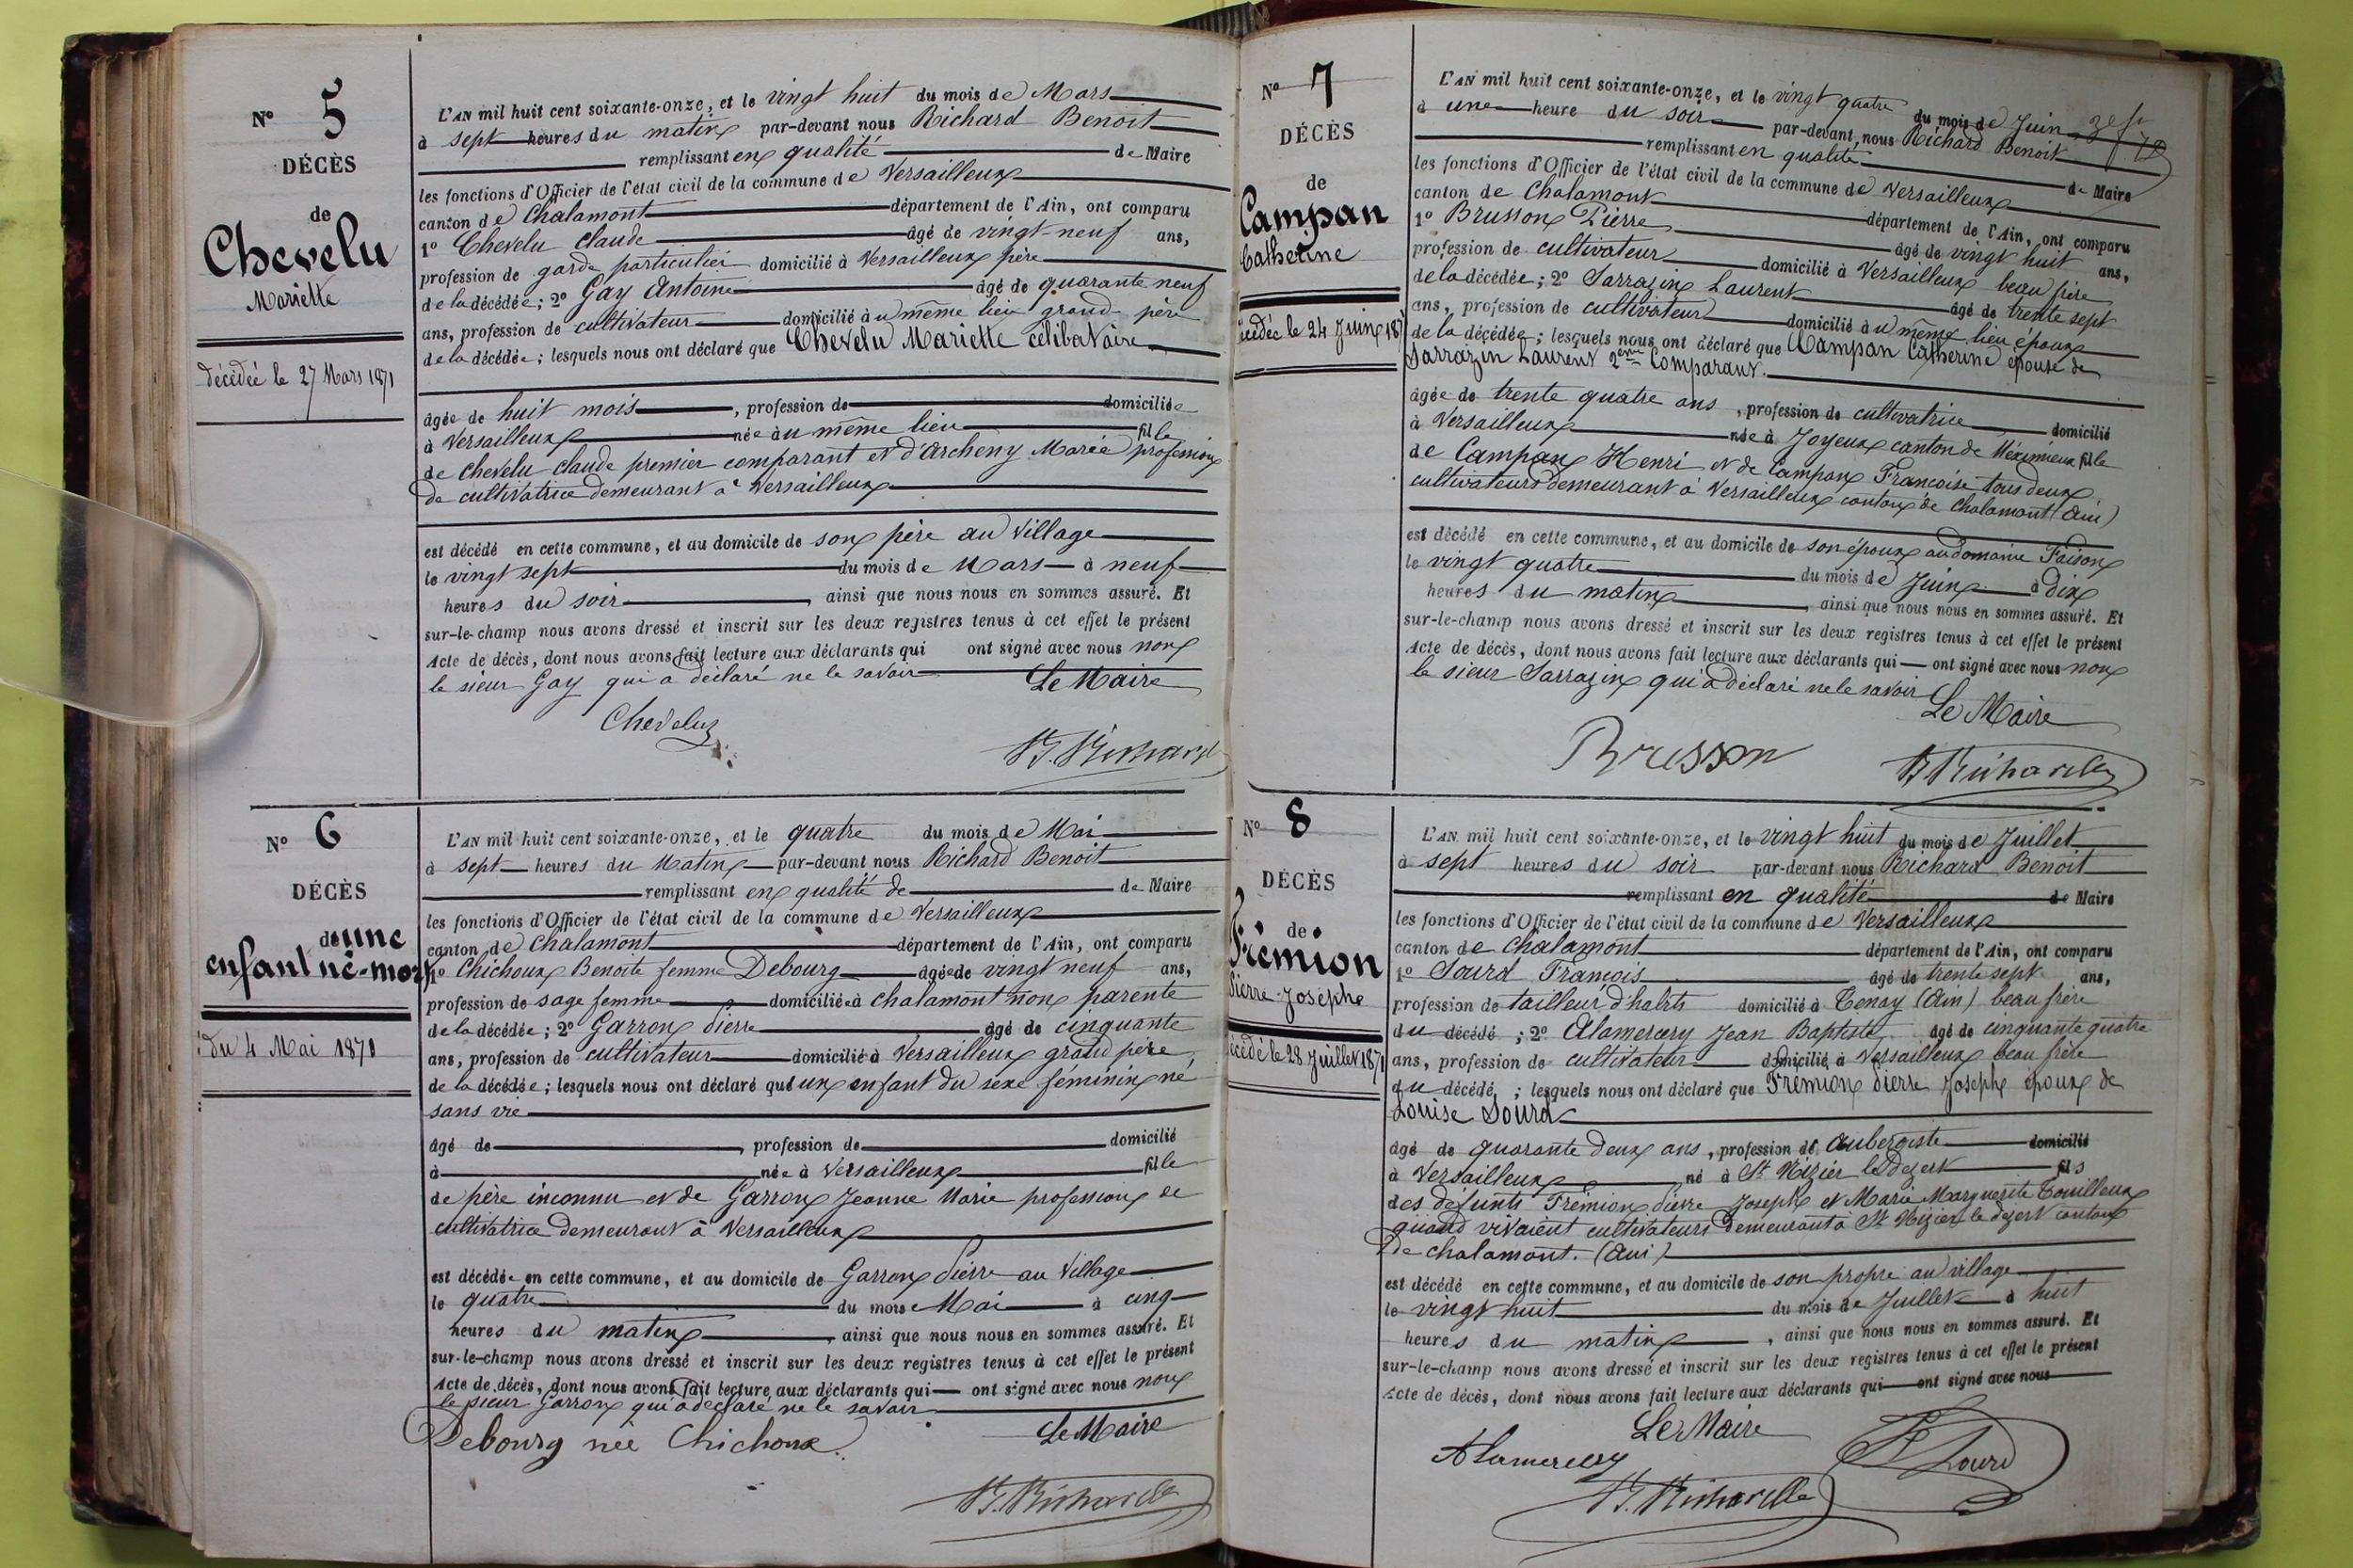 N° 5
DÉCÈS
de
Chevelu
Mariette
décédée le 27 Mars 1871
L'AN mil huit cent soixante-onze, et le vingt huit du mois de Mars
à sept heures du matin par-devant nous Richard Benoit
remplissant en qualité de Maire
les fonctions d'Officier de l'état civil de la commune de Versailleux
canton de Chalamont département de l'Ain, ont comparu
1° Chevelu Claude âgé de vingt-neuf ans,
profession de garde particulier domicilié à Versailleux père
de la décédée; 2° Gay Antoine âgé de quarante neuf
ans, profession de cultivateur domicilié au même lieu grand père
de la décédée; lesquels nous ont déclaré que Chevelu Mariette célibataire
âgée de huit mois, profession de domiciliée
à Versailleux née au même lieu fille
de Chevelu Claude premier comparant et d'Archeny Marie profession
de cultivatrice demeurant à Versailleux
est décédé en cette commune, et au domicile de son père au Village
le vingt sept du mois de Mars à neuf
heures du soir, ainsi que nous nous en sommes assuré. Et
sur-le-champ nous avons dressé et inscrit sur les deux registres tenus à cet effet le présent
Acte de décès, dont nous avons fait lecture aux déclarants qui ont signé avec nous non
le sieur Gay qui a déclaré ne le savoir Le Maire
Chevelu
N° 6
DÉCÈS
de une
enfant né-mort
du 4 Mai 1871
L'AN mil huit cent soixante-onze, et le quatre du mois de Mai
à sept heures du Matin par-devant nous Richard Benoit
remplissant en qualité de de Maire
les fonctions d'Officier de l'état civil de la commune de Versailleux
canton de Chalamont département de l'Ain, ont comparu
1° Chichoux Benoite femme Debourg âgée de vingt neuf ans,
profession de sage femme domiciliée à Chalamont non parente
de la décédée; 2° Garron Pierre âgé de cinquante
ans, profession de cultivateur domicilié à Versailleux grand père
de la décédée; lesquels nous ont déclaré que un enfant du sexe féminin né
sans vie
âgé de, profession de domicilié
à née à Versailleux fille
de père inconnu et de Garron Jeanne Marie profession de
cultivatrice demeurant à Versailleux
est décédée en cette commune, et au domicile de Garron Pierre au Village
le quatre du mois Mai à cinq
heures du matin, ainsi que nous nous en sommes assuré. Et
sur-le-champ nous avons dressé et inscrit sur les deux registres tenus à cet effet le présent
Acte de décès, dont nous avons fait lecture aux déclarants qui ont signé avec nous non
le sieur Garron qui a déclaré ne le savoir
Le Maire
Debourg née Chichoux
N° 7
DÉCÈS
de
Campan
Catherine
décédée le 24 Juin 187
L'AN mil huit cent soixante-onze, et le vingt quatre du mois de Juin
à une heure du soir par-devant nous Richard Benoit
remplissant en qualité de Maire
les fonctions d'Officier de l'état civil de la commune de Versailleux
canton de Chalamont département de l'Ain, ont comparu
1° Brusson Pierre âgé de vingt huit ans,
profession de cultivateur domicilié à Versailleux beau frère
de la décédée; 2° Sarrazin Laurent âgé de trente sept
ans, profession de cultivateur domicilié au même lieu époux
de la décédée; lesquels nous ont déclaré que Campan Catherine épouse de
Sarrazin Laurent 2ème Comparant.
âgée de trente quatre ans, profession de cultivatrice domicilié
à Versailleux née à Joyeux canton de Méximieux fille
de Campan Henri et de Campan Francoise tous deux
cultivateurs demeurant à Versailleux canton de Chalamont (Ain)
est décédé en cette commune, et au domicile de son époux au domaine Faison
le vingt quatre du mois de Juin à dix
heures du matin, ainsi que nous nous en sommes assuré. Et
sur-le-champ nous avons dressé et inscrit sur les deux registres tenus à cet effet le présent
Acte de décès, dont nous avons fait lecture aux déclarants qui ont signé avec nous non
le sieur Sarrazin qui a déclaré ne le savoir
Le Maire
Brusson
N° 8
DÉCÈS
de
Frémion
Pierre Josephe
décédé le 28 Juillet 1871
L'AN mil huit cent soixante-onze, et le vingt huit du mois de Juillet
à sept heures du soir par-devant nous Richard Benoit
remplissant en qualité de Maire
les fonctions d'Officier de l'état civil de la commune de Versailleux
canton de Chalamont département de l'Ain, ont comparu
1° Sourd François âgé de trente sept ans,
profession de tailleur d'habits domicilié à Tenay (Ain) beau frère
du décédé; 2° Alamercery Jean Baptiste âgé de cinquante quatre
ans, profession de cultivateur domicilié à Versailleux beau frère
du décédé; lesquels nous ont déclaré que Frémion Pierre Joseph époux de
Louise Sourd
âgé de quarante deux ans, profession de aubergiste domicilié
à Versailleux né à St Nizier le Dezert fils
des défunts Frémion Pierre Joseph et Marie Marguerite Touilleux
quand vivaient cultivateurs demeurant à St Nizier le dezert canton
de Chalamont. (Ain)
est décédé en cette commune, et au domicile de son propre au village
le vingt huit du mois de Juillet à huit
heures du matin, ainsi que nous nous en sommes assuré. Et
sur-le-champ nous avons dressé et inscrit sur les deux registres tenus à cet effet le présent
Acte de décès, dont nous avons fait lecture aux déclarants qui ont signé avec nous
Le Maire
Alamercery
Sourd